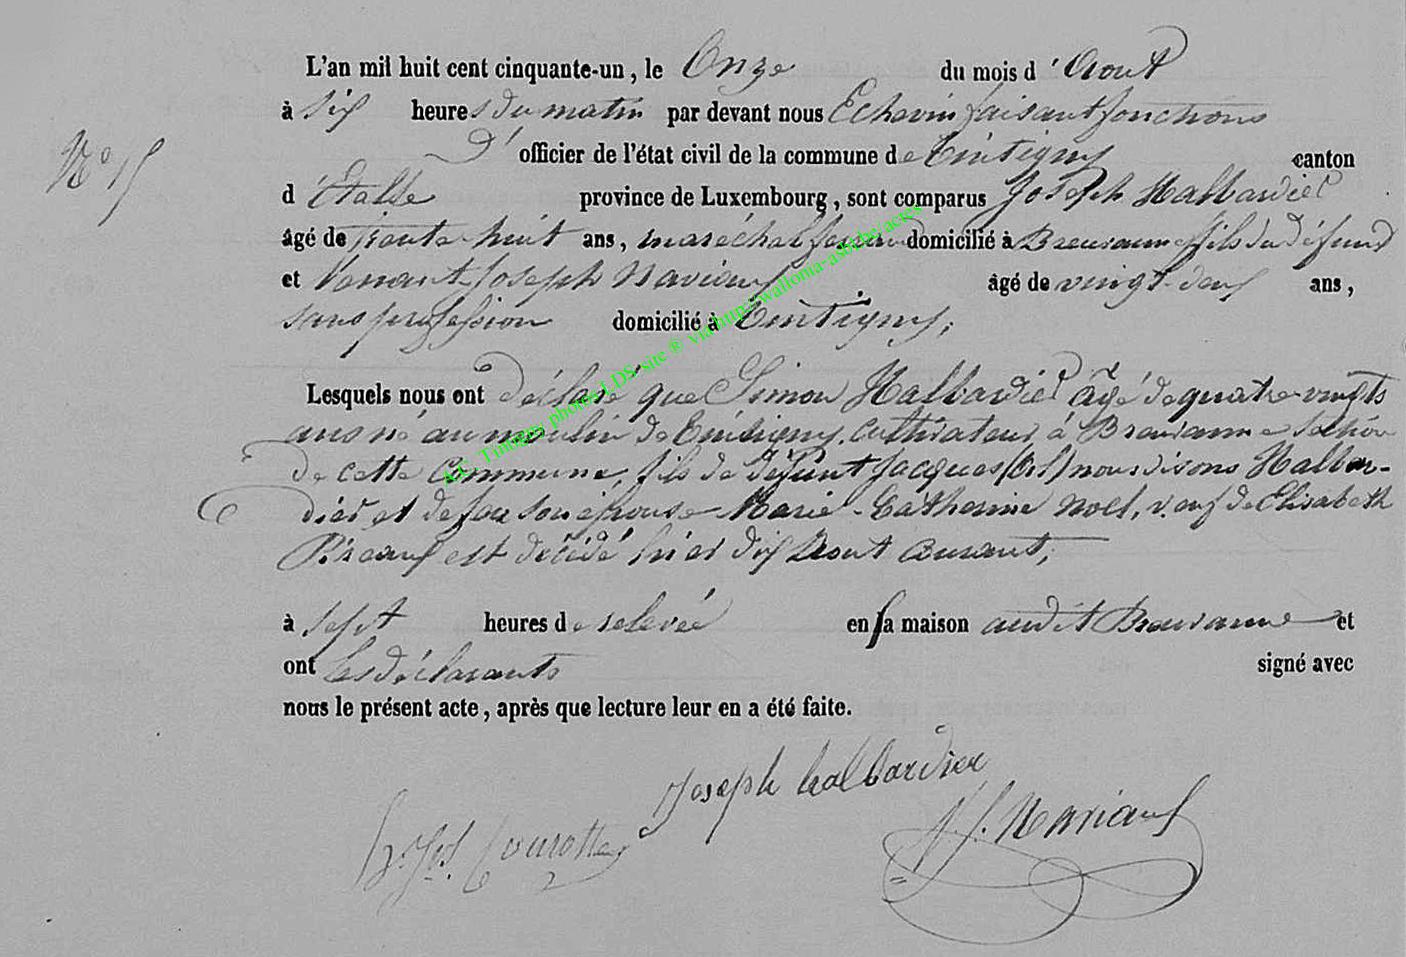 L'an mil huit cent cinquante-un, le Onze du mois d'Aout
à six heures du matin par devant nous Echevin faisant fonctions
N° 15
D' officier de l'état civil de la commune de Tintigny canton
d'Etalle province de Luxembourg, sont comparus Joseph Halbardier
âgé de trente huit ans, maréchal ferrant domicilié à Breuvanne fils du défunt
et Venant Joseph Naviaux âgé de vingt-deux ans,
sans profession domicilié à Tintigny;
Lesquels nous ont déclaré que Simon Halbardier âgé de quatre-vingts
ans né au moulin de Tintigny, cultivateur, à Breuvanne section
de cette Commune, fils de défunt Jacques nous disons Halbar-
dier et de feu son épouse Marie-Catherine Noël, veuf de Elisabeth
est décédé hier dix Aout courant,
à sept heures de relevée en sa maison audit Breuvanne et
ont les déclarants signé avec
nous le présent acte, après que lecture leur en a été faite.
Joseph halbardier
J. Naviaux
A.E. Tintigny photos LDS-site ® via http://wallonia-asbl.be/actes